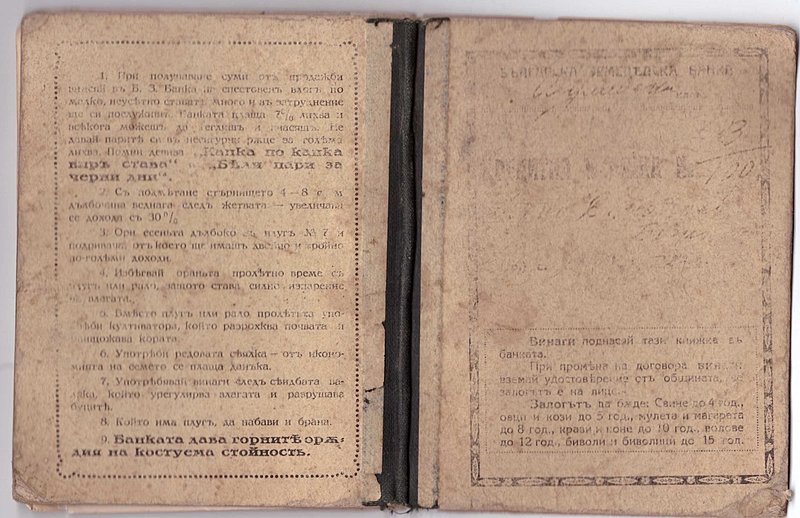 1. При получаване суми отъ продажби
внасяй въ Б. З. Банка на спестовенъ влогъ по
малко, неусѣтно ставатъ много и въ затруднение
ще си послужишъ. Банката плаща 7% лихва и
всѣкога можешъ да теглишъ и внасяшъ. Не
давай паритѣ си въ несигурни рѫце за голѣма
лихва. Помни девиза „Капка по капка
виръ става“ и „Бѣли пари за
черни дни“.
2. Съ подмѣтане стърнището 4—8 с. м
дълбочина веднага следъ жетвата — увеличаваш
се дохода съ 30%
3. Ори есеньта дълбоко съ плугъ № 7 и
подривачъ, отъ което ще имашъ двойно и тройно
по-голѣми доходи.
4. Избѣгвай ораньта пролѣтно време съ
плугъ или рало, защото става силно изпарение
на влагата.
5. Вмѣсто плугъ или рало пролѣтьта упо-
трѣби култиватора, който разрохква почвата и
унищожава кората.
6. Употрѣби редовата сѣялка — отъ иконо-
мията на семето се плаща данъка.
7. Употрѣбявай винаги следъ сѣидбата ва-
ляка, който урегулирва влагата и разрушава
буцитѣ.
8. Който има плугъ, да набави и брана.
9. Банката дава горнитѣ орѫ-
дия на костуема стойность.
БЪЛГАРСКА ЗЕМЕДѢЛСКА БАНКА
Винаги поднасяй тази книжка въ
банката.
При промѣна на договора винаги
вземай удостовѣрение отъ общината, че
залогътъ е на лице.
Залогътъ да бѫде: Свине до 4 год.,
овци и кози до 5 год., мулета и магарета
до 8 год., крави и коне до 10 год., волове
до 12 год., биволи и биволици до 15 год.